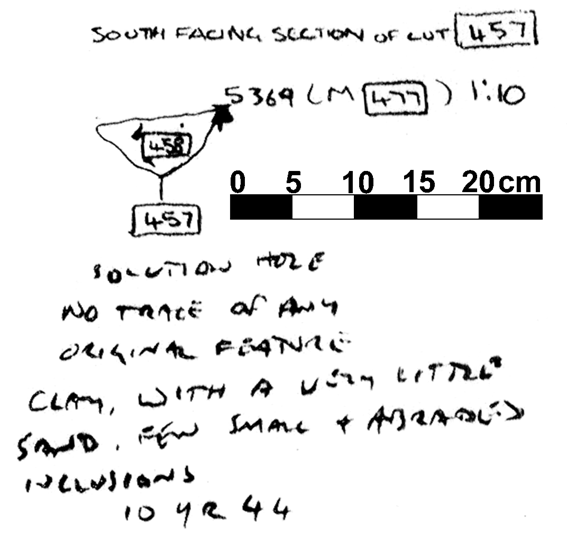 SOUTH FACING SECTION OF CUT 457
5369 (M 477) 1:10
458
0 5 10 15 20cm
457
SOLUTION HOLE
NO TRACE OF ANY
ORIGINAL FEATURE
CLAY, WITH A VERY LITTLE
SAND. FEW SMALL + ABRADED
INCLUSIONS
10 YR 44